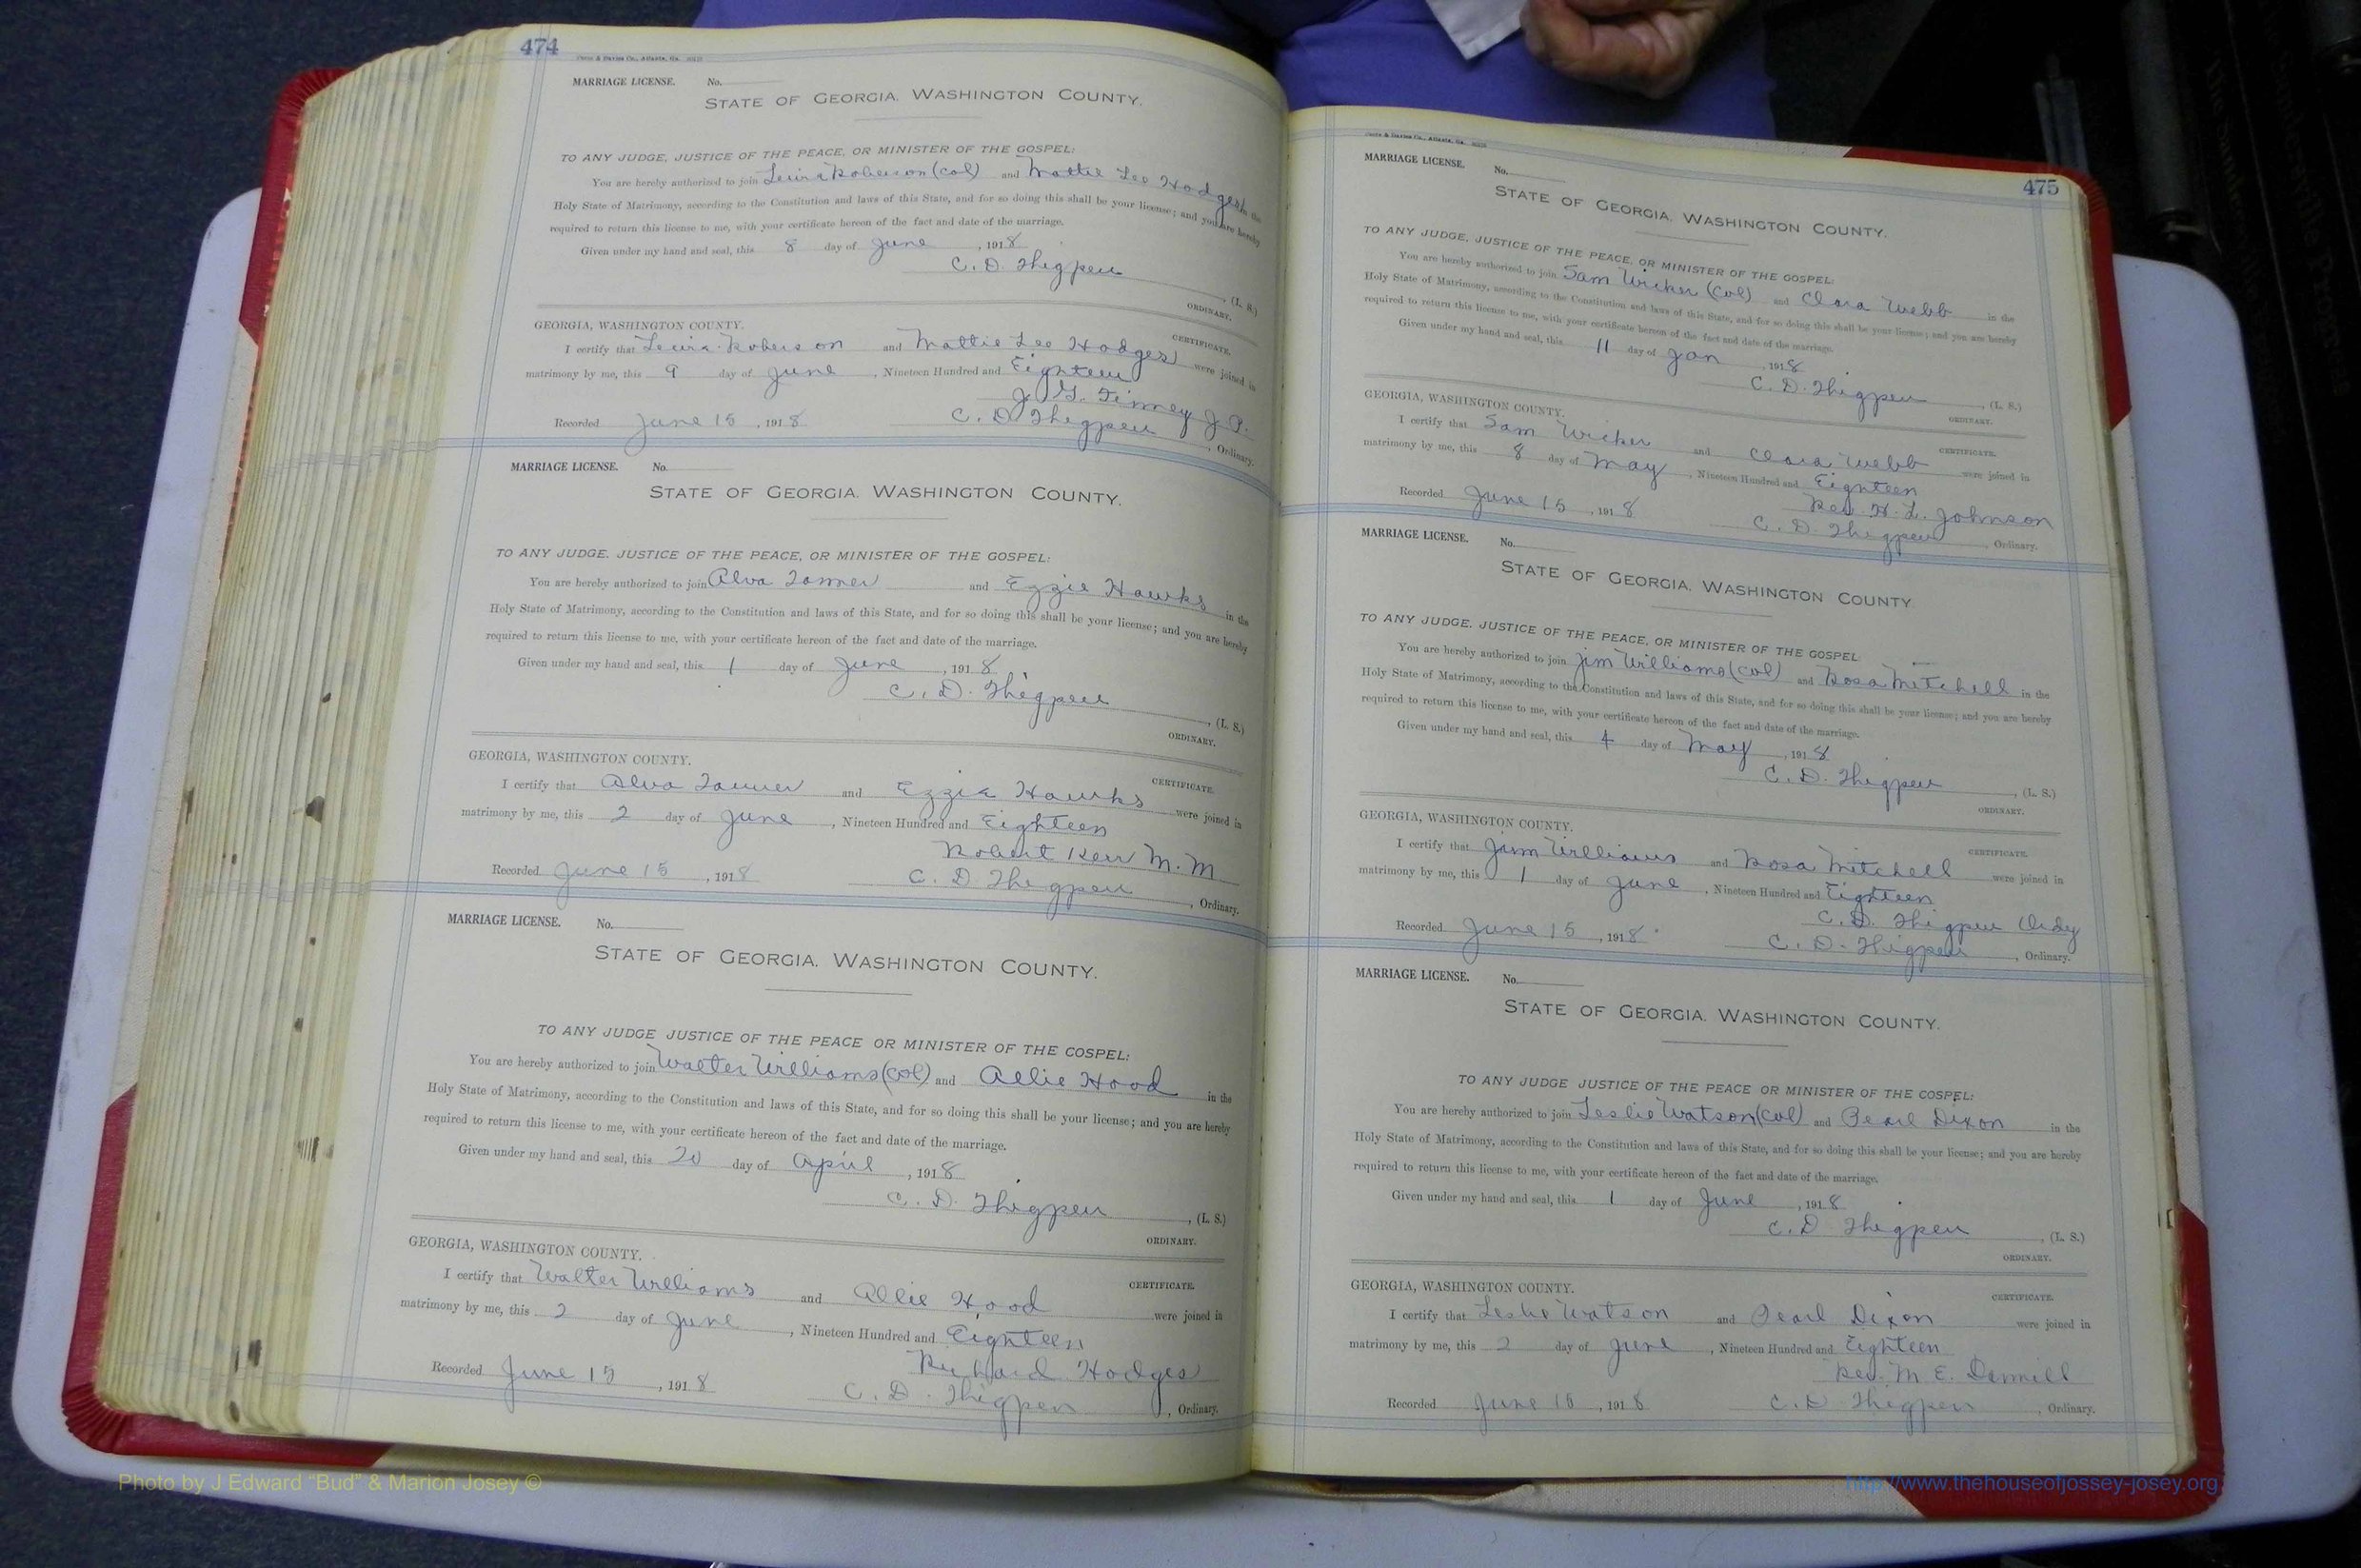 474
MARRIAGE LICENSE. No.
STATE OF GEORGIA, WASHINGTON COUNTY.
TO ANY JUDGE, JUSTICE OF THE PEACE, OR MINISTER OF THE GOSPEL:
You are hereby authorized to join Lewis Roberson (col) and Mattie Lee Hodges in the
Holy State of Matrimony, according to the Constitution and laws of this State, and for so doing this shall be your license; and you are hereby
required to return this license to me, with your certificate hereon of the fact and date of the marriage.
Given under my hand and seal, this 8 day of June, 1918
C. D. Thigpen, (L. S.)
ORDINARY.
GEORGIA, WASHINGTON COUNTY.
CERTIFICATE.
I certify that Lewis Roberson and Mattie Lee Hodges were joined in
matrimony by me, this 9 day of June, Nineteen Hundred and Eighteen
J. G. Tinney J. P.
Recorded June 15, 1918 C. D. Thigpen, Ordinary.
MARRIAGE LICENSE. No.
STATE OF GEORGIA, WASHINGTON COUNTY.
TO ANY JUDGE, JUSTICE OF THE PEACE, OR MINISTER OF THE GOSPEL:
You are hereby authorized to join Alva Tanner and Ezzie Hawks in the
Holy State of Matrimony, according to the Constitution and laws of this State, and for so doing this shall be your license; and you are hereby
required to return this license to me, with your certificate hereon of the fact and date of the marriage.
Given under my hand and seal, this 1 day of June, 1918
C. D. Thigpen, (L. S.)
ORDINARY.
GEORGIA, WASHINGTON COUNTY.
CERTIFICATE.
I certify that Alva Tanner and Ezzie Hawks were joined in
matrimony by me, this 2 day of June, Nineteen Hundred and Eighteen
Robert Kerr M. M
Recorded June 15, 1918 C. D. Thigpen, Ordinary.
MARRIAGE LICENSE. No.
STATE OF GEORGIA, WASHINGTON COUNTY.
TO ANY JUDGE JUSTICE OF THE PEACE OR MINISTER OF THE GOSPEL:
You are hereby authorized to join Walter Williams (col) and Allie Hood in the
Holy State of Matrimony, according to the Constitution and laws of this State, and for so doing this shall be your license; and you are hereby
required to return this license to me, with your certificate hereon of the fact and date of the marriage.
Given under my hand and seal, this 20 day of April, 1918
C. D. Thigpen, (L. S.)
ORDINARY.
GEORGIA, WASHINGTON COUNTY.
CERTIFICATE.
I certify that Walter Williams and Allie Hood were joined in
matrimony by me, this 2 day of June, Nineteen Hundred and Eighteen
Richard Hodges
Recorded June 15, 1918 C. D. Thigpen, Ordinary.
475
MARRIAGE LICENSE. No.
STATE OF GEORGIA, WASHINGTON COUNTY.
TO ANY JUDGE, JUSTICE OF THE PEACE, OR MINISTER OF THE GOSPEL:
You are hereby authorized to join Sam Wicker (col) and Clara Webb in the
Holy State of Matrimony, according to the Constitution and laws of this State, and for so doing this shall be your license; and you are hereby
required to return this license to me, with your certificate hereon of the fact and date of the marriage.
Given under my hand and seal, this 11 day of Jan, 1918
C. D. Thigpen, (L. S.)
ORDINARY.
GEORGIA, WASHINGTON COUNTY.
CERTIFICATE.
I certify that Sam Wicker and Clara Webb were joined in
matrimony by me, this 8 day of May, Nineteen Hundred and Eighteen
Rev. H. L. Johnson
Recorded June 15, 1918 C. D. Thigpen, Ordinary.
MARRIAGE LICENSE. No.
STATE OF GEORGIA, WASHINGTON COUNTY
TO ANY JUDGE, JUSTICE OF THE PEACE, OR MINISTER OF THE GOSPEL
You are hereby authorized to join Jim Williams (col) and Rosa Mitchell in the
Holy State of Matrimony, according to the Constitution and laws of this State, and for so doing this shall be your license; and you are hereby
required to return this license to me, with your certificate hereon of the fact and date of the marriage.
Given under my hand and seal, this 4 day of May, 1918
C. D. Thigpen, (L. S.)
ORDINARY.
GEORGIA, WASHINGTON COUNTY.
CERTIFICATE.
I certify that Jim Williams and Rosa Mitchell were joined in
matrimony by me, this 1 day of June, Nineteen Hundred and Eighteen
C. D. Thigpen Ordy
Recorded June 15, 1918 C. D. Thigpen, Ordinary.
MARRIAGE LICENSE. No.
STATE OF GEORGIA, WASHINGTON COUNTY.
TO ANY JUDGE JUSTICE OF THE PEACE OR MINISTER OF THE GOSPEL:
You are hereby authorized to join Leslie Watson (col) and Pearl Dixon in the
Holy State of Matrimony, according to the Constitution and laws of this State, and for so doing this shall be your license; and you are hereby
required to return this license to me, with your certificate hereon of the fact and date of the marriage.
Given under my hand and seal, this 1 day of June, 1918
C. D Thigpen, (L. S.)
ORDINARY.
GEORGIA, WASHINGTON COUNTY.
CERTIFICATE.
I certify that Leslie Watson and Pearl Dixon were joined in
matrimony by me, this 2 day of June, Nineteen Hundred and Eighteen
Rev. M. E.
Recorded June 15, 1918 C. D Thigpen, Ordinary.
Photo by J Edward "Bud" & Marion Josey ©
http://www.thehouseofjossey-josey.org